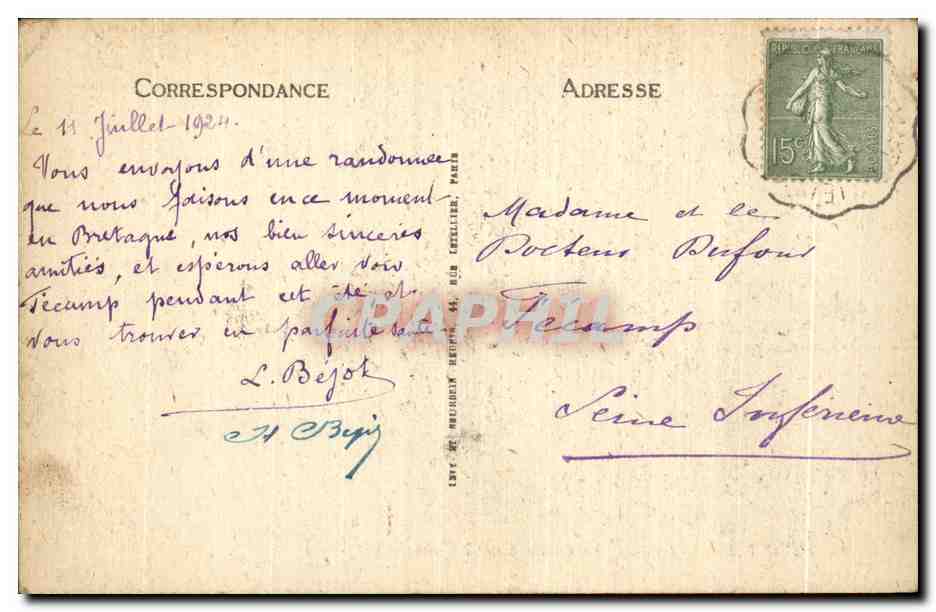 CORRESPONDANCE
Le 11 Juillet 1924.
Vous envoyons d'une randonnée
que nous faisons en ce moment
en Bretagne, nos bien sincères
amitiés, et espérons aller voir
Fécamp pendant cet été et
vous trouver en parfaite santé
L. Béjot
H
LEVY ET NEURDEIN REUNIS, 44, RUE LETELLIER, PARIS
ADRESSE
REPUBLIQUE FRANÇAISE
15c
POSTES
Madame et le
Docteur Dufour
Fécamp
Seine Inférieure
CPAPHIL